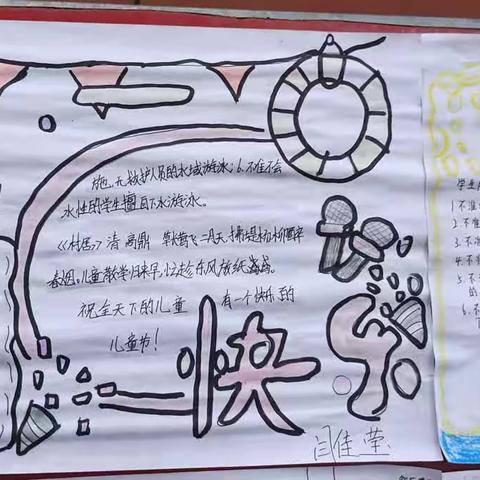 施、无救护人员的水域游泳;6.不准不会
水性的学生擅自下水游泳。
《村居》清 高鼎 草长莺飞二月天,拂堤杨柳醉
春烟。儿童散学归来早,忙趁东风放纸鸢。
祝全天下的儿童 有一个快乐的
儿童节!
快
闫佳荣
学生
1.不准
2.不准
3.不准
4.不准
5.不
的
6.不
下